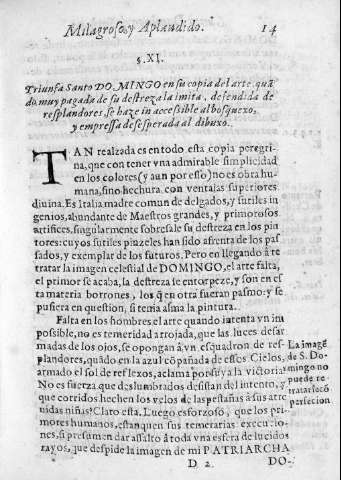 Milagroso, y Aplaudido. 14
§. XI.
Triunfa Santo DOMINGO en su copia del arte, quã
do, muy pagada de su destreza la imita, defendida de
resplandores, se haze inaccessible al bosquexo,
y empressa desesperada al dibuxo.
TAN realzada es en todo esta copia peregri
na, que con tener vna admirable simplicidad
en los colores (y aun por esso) no es obra hu-
mana, sino hechura con ventajas superiores
diuina. Es Italia madre comun de delgados, y sutiles in
genios, abundante de Maestros grandes, y primorosos
artifices, singularmente sobresale su destreza en los pin
tores: cuyos sutiles pinzeles han sido afrenta de los pas
sados, y exemplar de los futuros. Pero en llegando à re
tratar la imagen celestial de DOMINGO, el arte falta,
el primor se acaba, la destreza se entorpeze, y son en es
ta materia borrones, los q̃ en otra fueran pasmo: y se
pusiera en question, si tenia asma la pintura.
Falta en los hombres el arte quando intenta vn im
possible, no es temeridad arrojada, que las luces desar
madas de los ojos, se opongan à vn esquadron de res-
plandores, quãdo en la azul cõpañada de essos Cielos,
armado el sol de reflexos, aclama por suya la victoria?
No es fuerza que deslumbrados desistan del intento, y
que corridos hechen los velos de las pestañas à sus atre
uidas niñas? Claro esta. Luego es forzoso, que los pri-
mores humanos, estanquen sus temerarias execucio-
nes, si presumen dar assalto à toda vna esfera de lucidos
rayos, que despide la imagen de mi PATRIARCHA
La imagẽ
de S. Do-
mingo no
puede re-
tratarse cõ
perfecion
D. 2. DO-